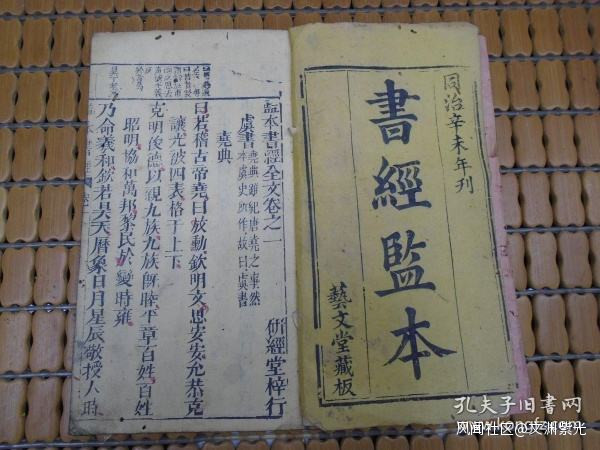 同治辛未年刊
書經監本
藝文堂藏板
監本書經全文卷之一
研經堂梓行
虞書
堯典雖紀唐堯之事然
本虞史所作故曰虞書
堯典
曰若稽古帝堯曰放勳欽明文思安安允恭克
讓光被四表格于上下
克明俊德以親九族九族旣睦平章百姓百姓
昭明協和萬邦黎民於變時雍
乃命羲和欽若昊天曆象日月星辰敬授人時
孔夫子旧书网
风闻社区@文渊紫光